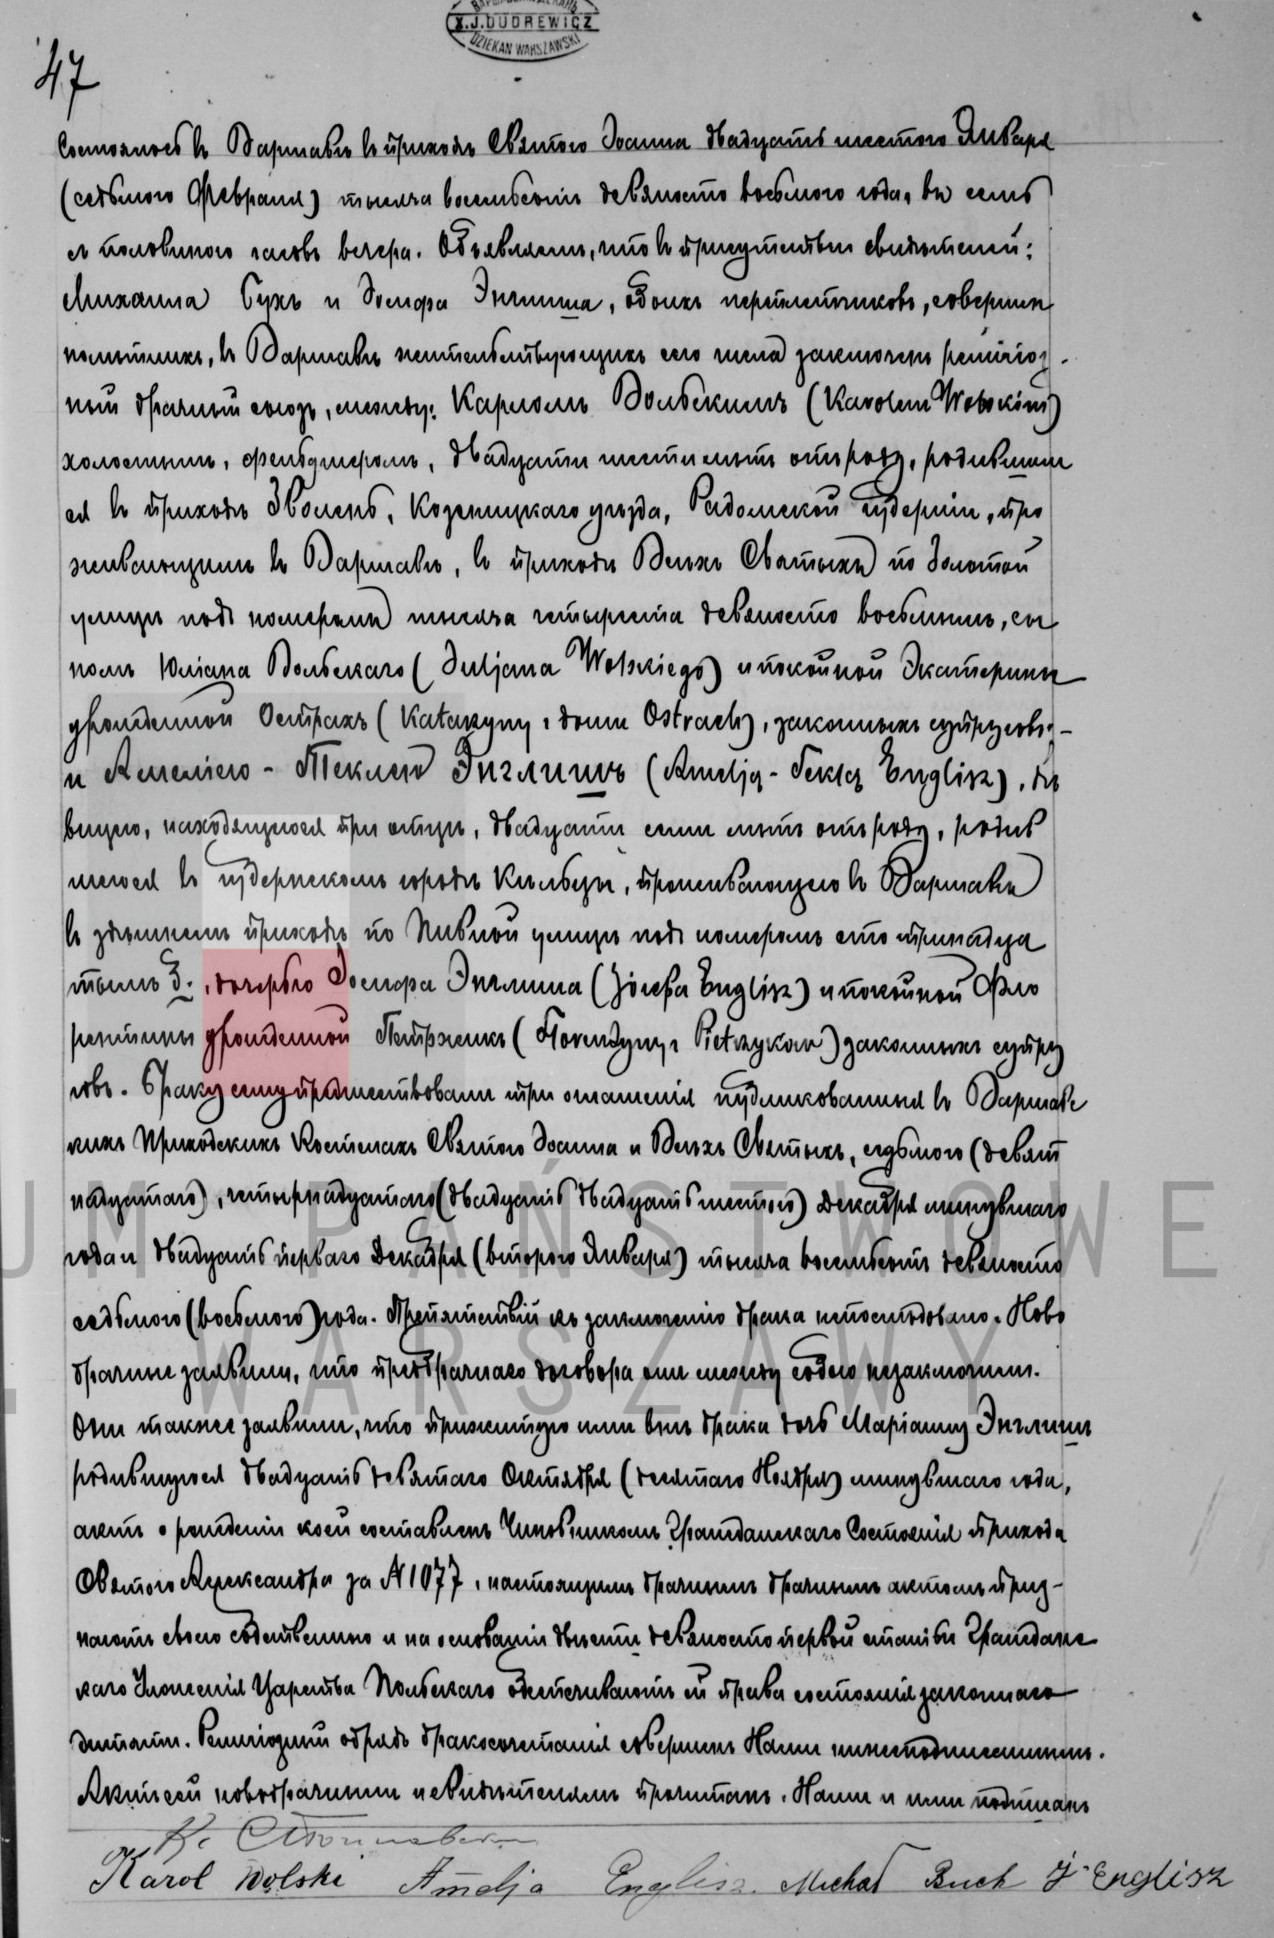 X.J.DUDREWICZ
DZIEKAN WARSZAWSKI
47
Состоялось въ Варшавѣ въ приходѣ Святого Іоанна двадцать шестого Января
(седьмого Февраля) тысяча восемьсотъ девяносто восьмого года, въ семь
съ половиною часовъ вечера. Объявляемъ, что въ присутствіи свидѣтелей:
Михаила Бухъ и Іосифа Энглиша, обоихъ переплетчиковъ, совершен
нолѣтнихъ, въ Варшавѣ жительствующихъ сего числа заключенъ религіоз-
ный брачный союзъ, между: Карломъ Вольскимъ (Karolem Wolskim)
холостымъ, фельдшеромъ, двадцати шести лѣтъ отъ роду, родившим
ся въ приходѣ Зволень, Козеницкаго уѣзда, Радомской губерніи, про
живающимъ въ Варшавѣ, въ приходѣ Всѣхъ Святыхъ по Золотой
улицѣ подъ номеромъ тысяча четыреста девяносто восьмымъ, сы
номъ Юліана Вольскаго (Juljana Wolskiego) и покойной Экатерины
урожденной Острахъ (Katarzyny z domu Ostrach), законныхъ супруговъ,-
и Амеліею-Теклею Энглишъ (Amelją-Teklą Englisz), дѣ
вицею, находящеюся при отцѣ, двадцати семи лѣтъ отъ роду, родив
шеюся въ губернскомъ городѣ Кѣльцы, проживающею въ Варшавѣ
въ здѣшнемъ приходѣ по Пивной улицѣ подъ номеромъ сто тринадца
тымъ З., дочерью Іосифа Энглиша (Józefa Englisz) и покойной Фло
рентины урожденной Петржикъ (Florentyny z Pietrzyków) законныхъ супру
говъ. Браку сему предшествовали три оглашенія публикованныя въ Варшавс
кихъ Приходскихъ Костелахъ Святого Іоанна и Всѣхъ Святыхъ, седьмого (девят
надцатаго), четырнадцатаго (двадцать двадцать шестого) Декабря минувшаго
года и двадцать перваго Декабря (второго Января) тысяча восемьсотъ девяносто
седьмого (восьмого) года. Препятствій къ заключенію брака не послѣдовало. Ново
брачные заявили, что предбрачнаго договора они между собою незаключили.
Они также заявили, что прижитую ими внѣ брака дочь Маріанну Энглишъ
родившуюся двадцать девятаго Октября (десятаго Ноября) минувшаго года,
актъ о рожденіи коей составленъ Чиновникомъ Гражданскаго Состоянія прихода
Святого Александра за № 1077, настоящимъ брачнымъ брачнымъ актомъ приз-
наютъ своею собственною и на основаніи двѣсти девяносто первой статьи Гражданс
каго Уложенія Царства Польскаго обезпечиваютъ ей права состоянія законнаго
дитяти. Религіозный обрядъ бракосочетанія совершенъ Нами нижеподписавшимъ.
Актъ сей новобрачнымъ и свидѣтелямъ прочитанъ, Нами и ими подписанъ
Karol Wolski Amelja Englisz. Michał Buch J. Englisz
UM PAŃSTWOWE
WARSZAWY